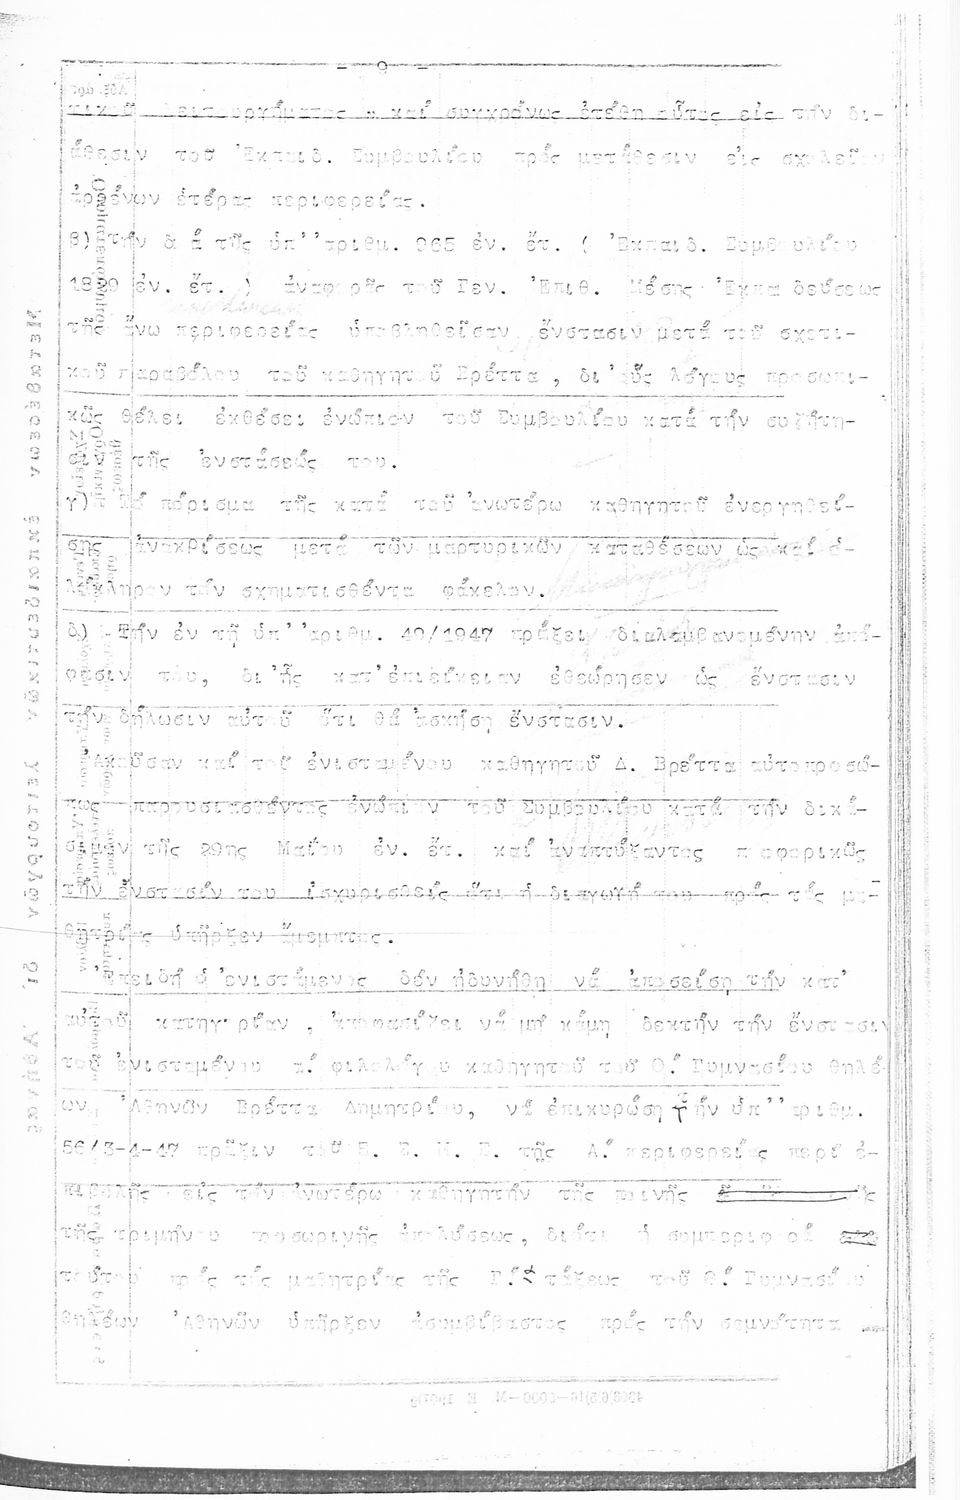 - 9 -
πικοῦ λειτουργήματος " καί συγχρόνως ἐτέθη οὗτος εἰς τήν δι-
άθεσιν τοῦ Ἐκπαιδ. Συμβουλίου πρός μετάθεσιν εἰς σχολεῖον
ἀρρένων ἑτέρας περιφερείας.
β) Τήν διά τῆς ὑπ' ἀριθμ. 965 ἐν. ἔτ. ( Ἐκπαιδ. Συμβουλίου
1829 ἐν. ἔτ. ) ἀναφορᾶς τοῦ Γεν. Ἐπιθ. Μέσης Ἐκπαιδεύσεως
τῆς ἄνω περιφερείας ὑποβληθεῖσαν ἔνστασιν μετά τοῦ σχετι-
κοῦ παραβόλου τοῦ καθηγητοῦ Βρέττα , δι' οὕς λόγους προσωπι-
κῶς θέλει ἐκθέσει ἐνώπιον τοῦ Συμβουλίου κατά τήν συζήτη-
σιν τῆς ἐνστάσεώς του.
γ) Τό πόρισμα τῆς κατά τοῦ ἀνωτέρω καθηγητοῦ ἐνεργηθεί-
σης ἀνακρίσεως μετά τῶν μαρτυρικῶν καταθέσεων ὡς καί ὁ-
λόκληρον τόν σχηματισθέντα φάκελον.
δ) Τήν ἐν τῇ ὑπ' ἀριθμ. 40/1947 πράξει διαλαμβανομένην ἀπό-
φασιν του, δι' ἧς κατ' ἐπιείκειαν ἐθεώρησεν ὡς ἔνστασιν
τήν δήλωσιν αὐτοῦ ὅτι θά ἀσκήσῃ ἔνστασιν.
Ἀκοῦσαν καί τοῦ ἐνισταμένου καθηγητοῦ Δ. Βρέττα αὐτοπροσώ-
πως παρουσιασθέντος ἐνώπιον τοῦ Συμβουλίου κατά τήν δικά-
σιμον τῆς 29ης Μαΐου ἐν. ἔτ. καί ἀναπτύξαντος προφορικῶς
τήν ἔνστασίν του ἰσχυρισθείς ὅτι ἡ διαγωγή του πρός τάς μα-
θητρίας ὑπῆρξεν ἄμεμπτος.
Ἐπειδή ὁ ἐνιστάμενος δέν ἠδυνήθη νά ἀποσείσῃ τήν κατ'
αὐτοῦ κατηγορίαν , ἀποφασίζει νά μή κάμῃ δεκτήν τήν ἔνστασιν
τοῦ ἐνισταμένου κ. φιλολόγου καθηγητοῦ τοῦ Θ.' Γυμνασίου θηλέ-
ων Ἀθηνῶν Βρέττα Δημητρίου, νά ἐπικυρώσῃ τήν ὑπ' ἀριθμ.
56/3-4-47 πρᾶξιν τοῦ Ε. Σ. Μ. Ε. τῆς Α.' περιφερείας περί ἐ-
πιβολῆς εἰς τόν ἀνωτέρω καθηγητήν τῆς ποινῆς
τῆς τριμήνου προσωρινῆς ἀπολύσεως, διότι ἡ συμπεριφορά
τούτου πρός τάς μαθητρίας τῆς Γ.' τάξεως τοῦ Θ.' Γυμνασίου
θηλέων Ἀθηνῶν ὑπῆρξεν ἀσυμβίβαστος πρός τήν σεμνότητα